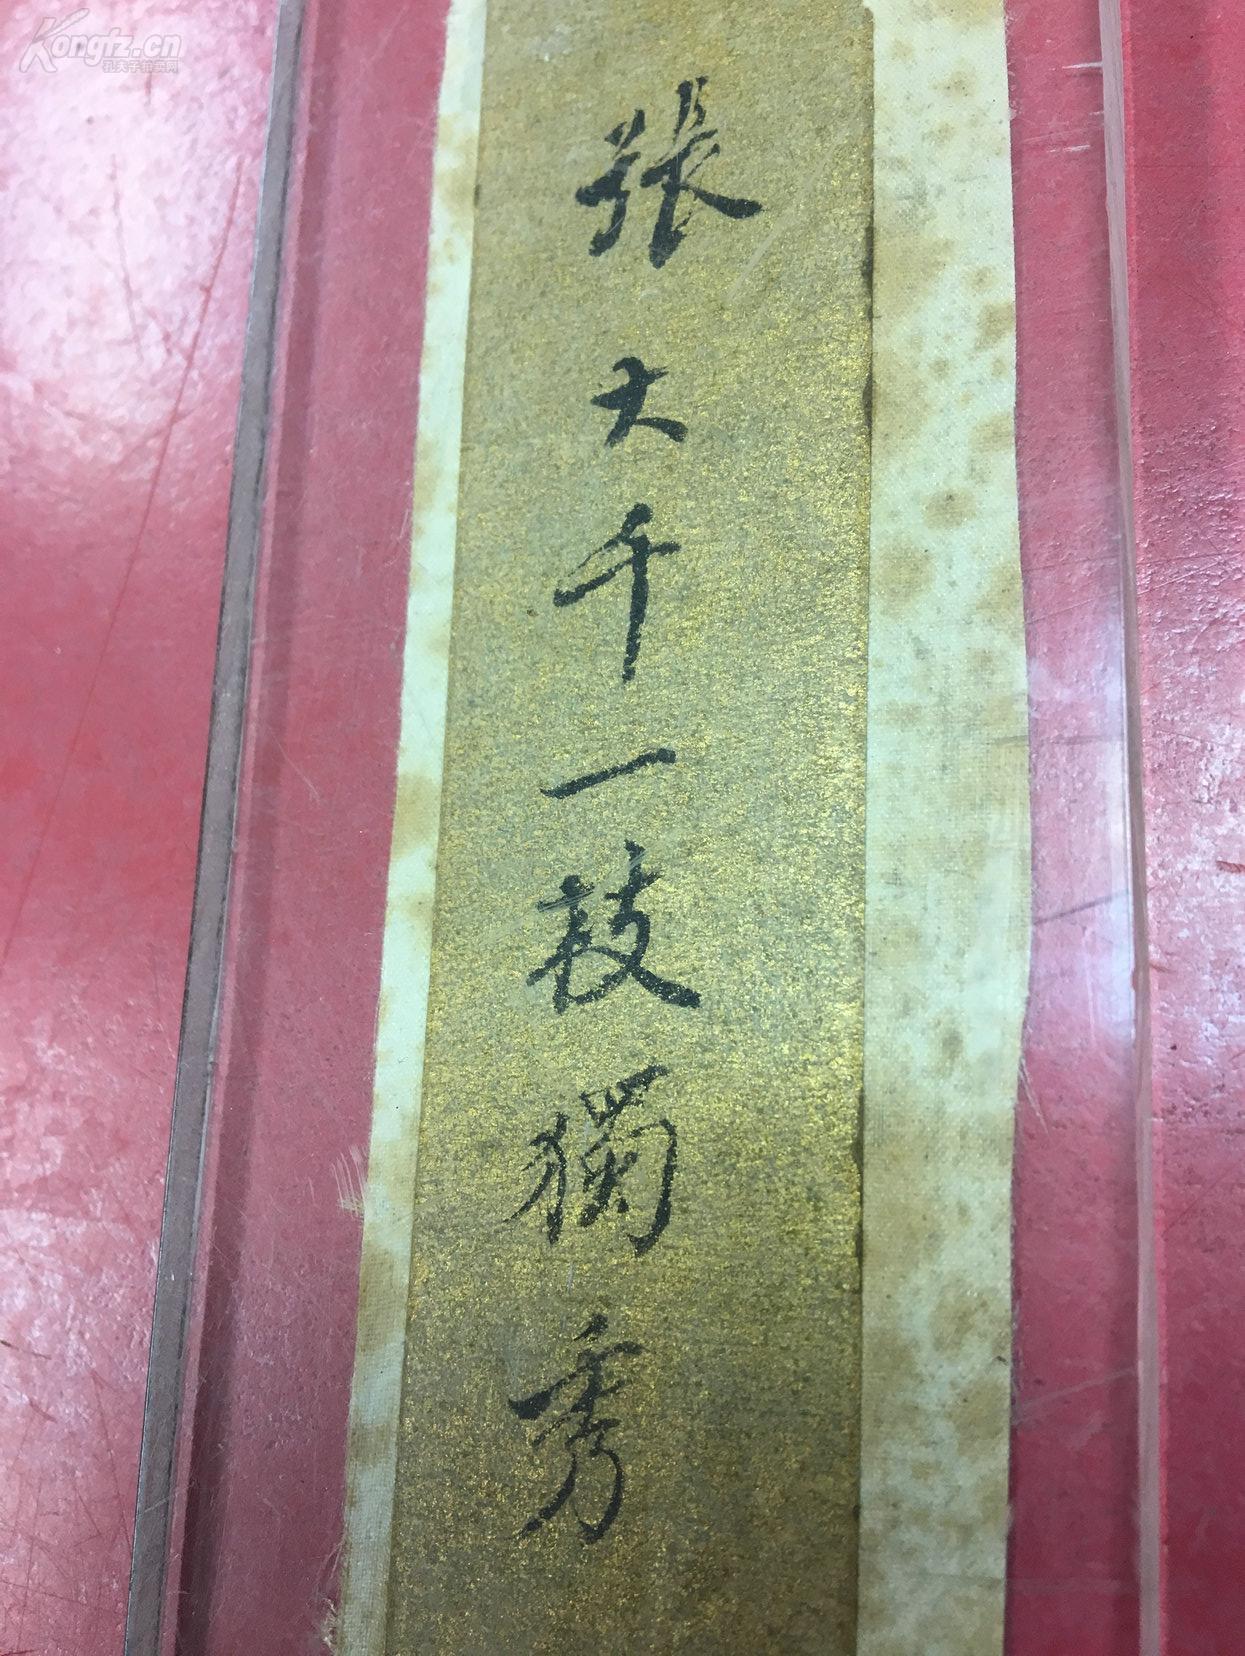 Kongfz.cn
孔夫子拍卖网
張大千一枝獨秀